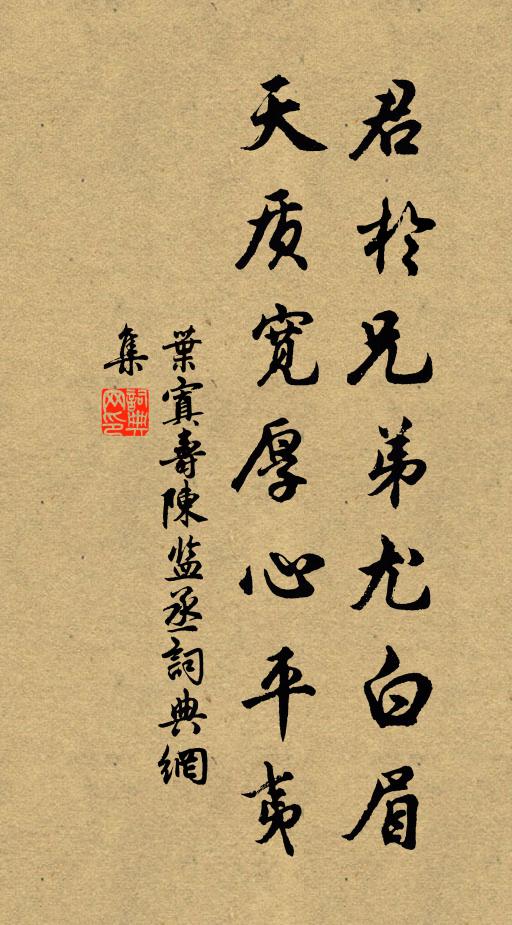 君於兄弟尤白眉
天质寬厚心平夷
葉寘壽陳监丞詞典網
集
詞典
网印